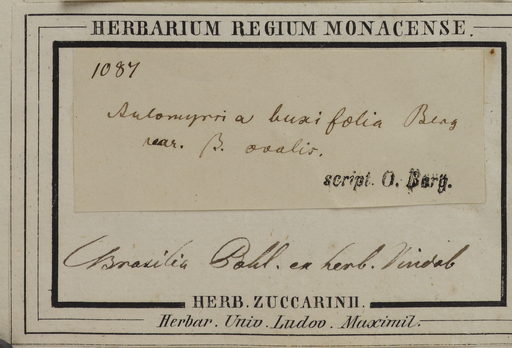 HERBARIUM REGIUM MONACENSE.
1087
Aulomyrcia buxifolia Berg
var. β. ovalis.
script. O. Berg.
Brasilia Pohl. ex herb. Vindob
HERB. ZUCCARINII.
Herbar. Univ. Ludov. Maximil.